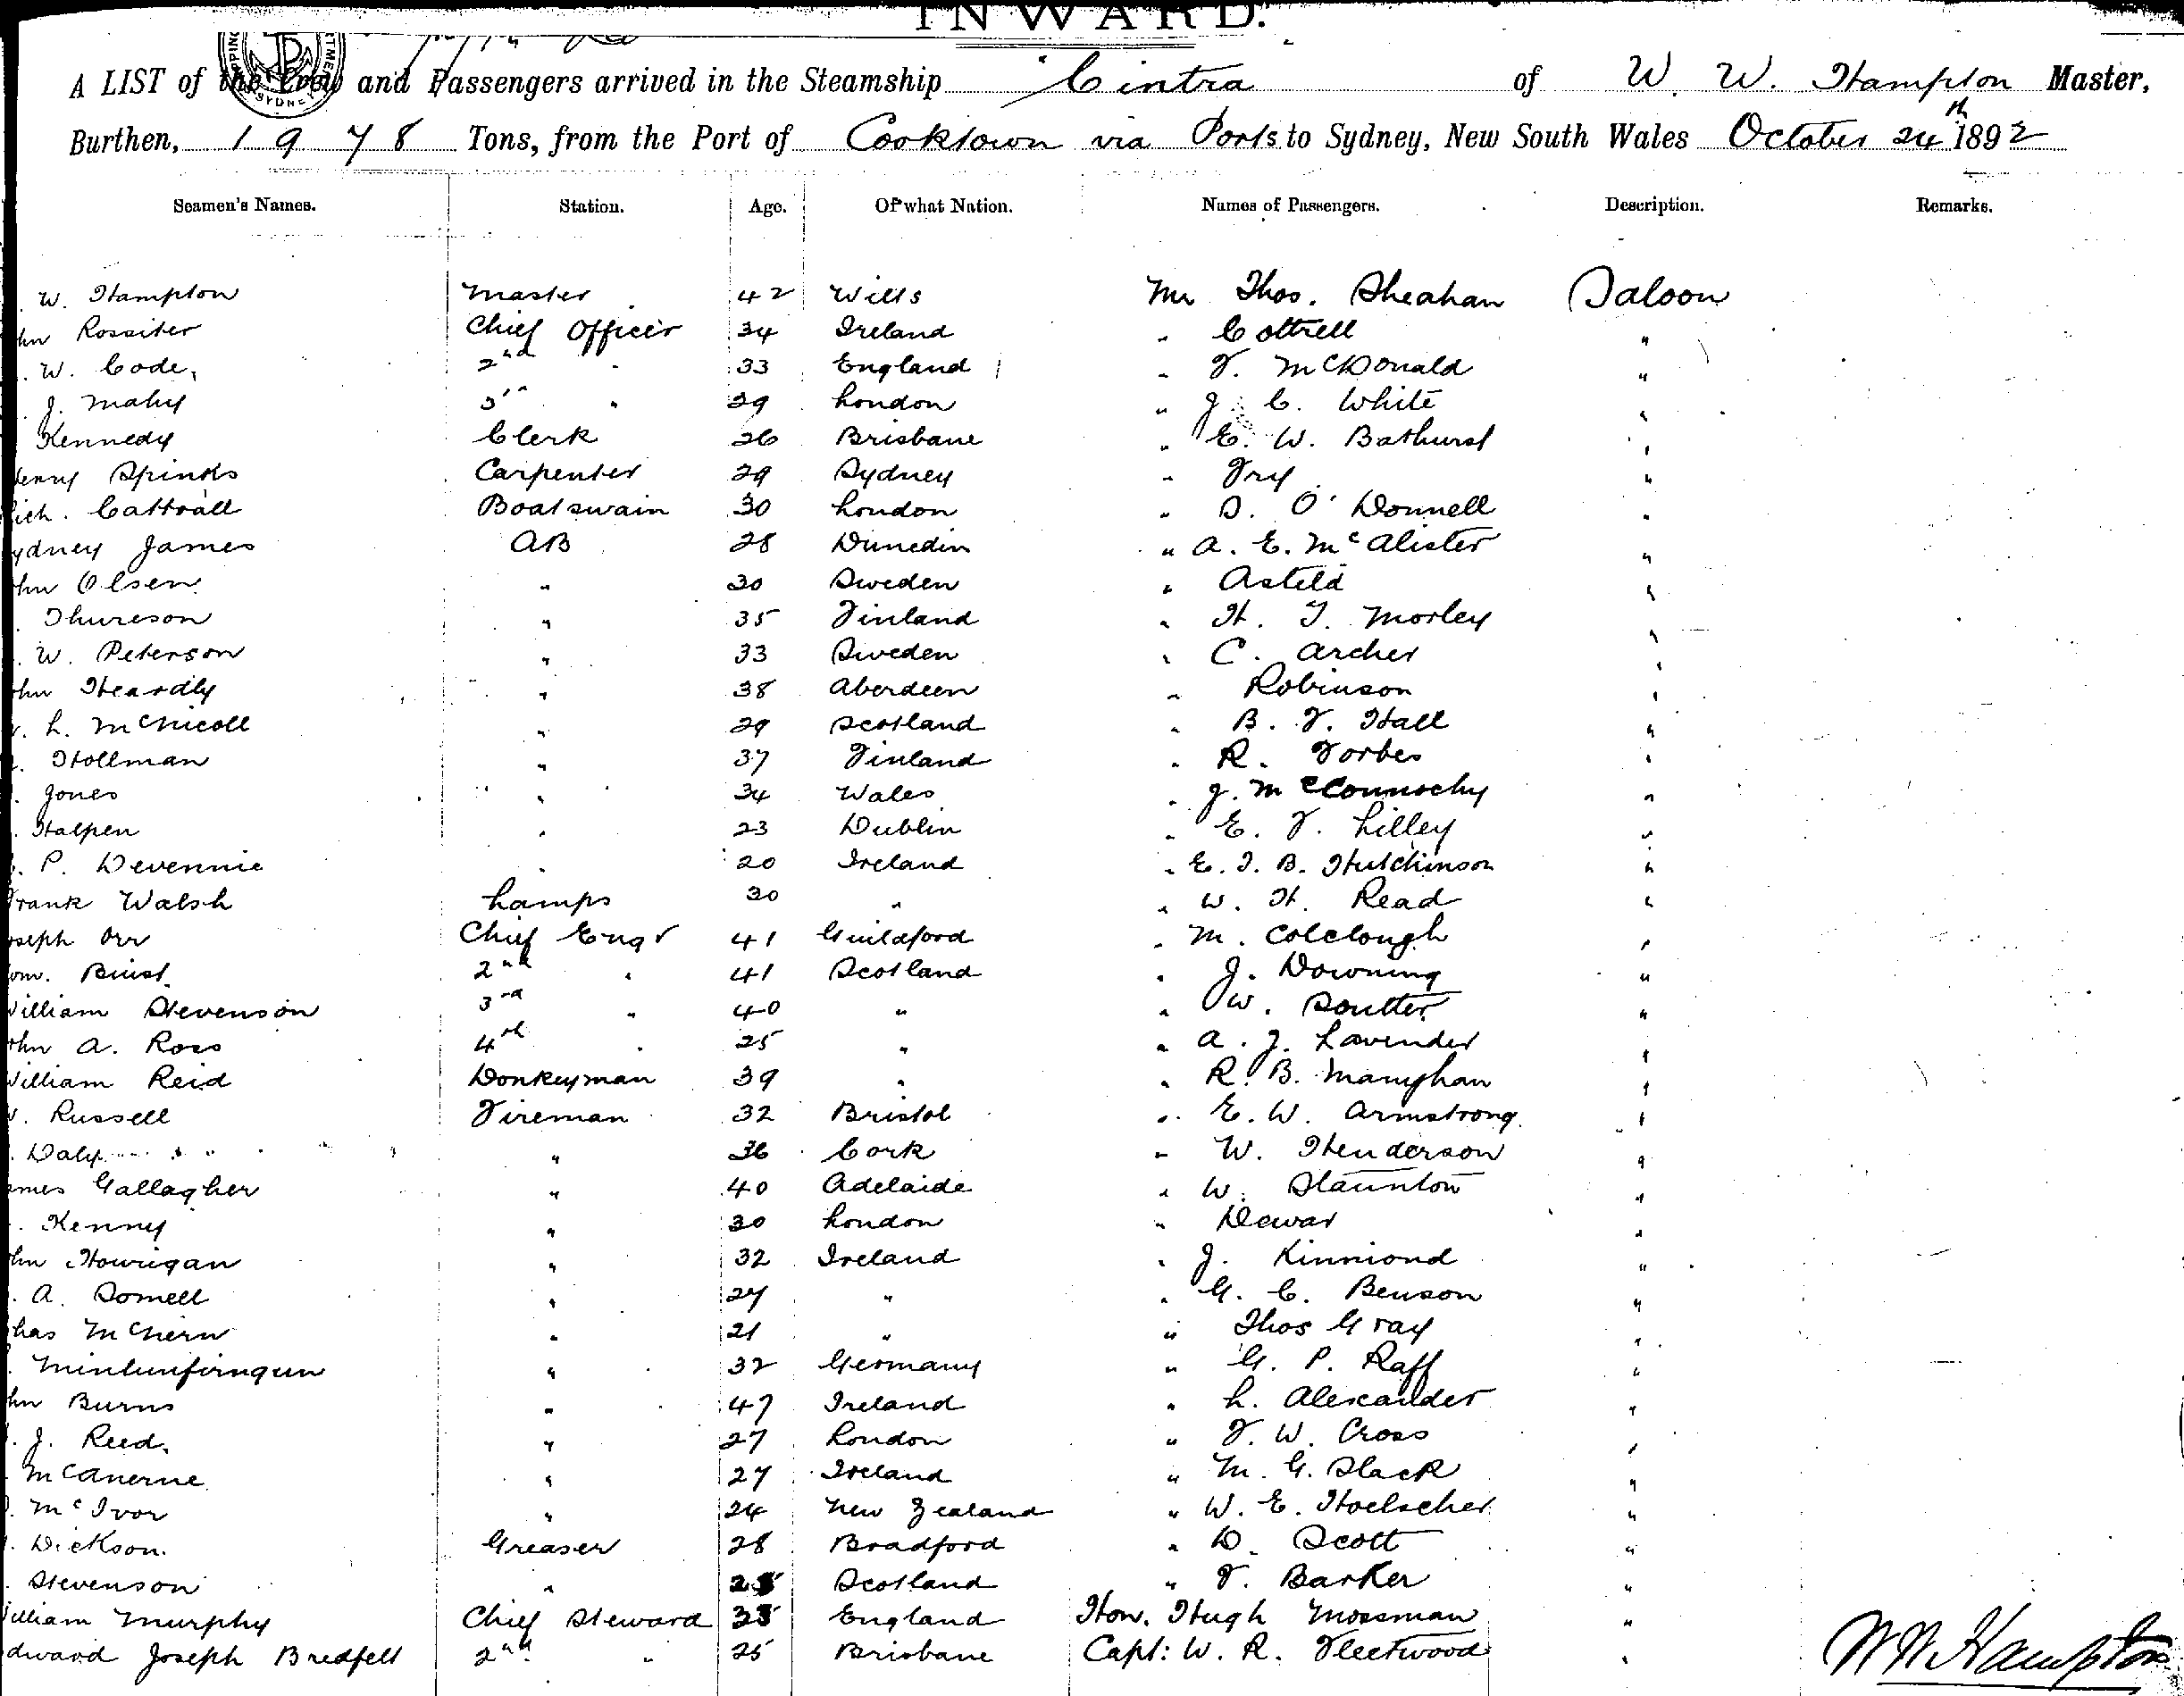 INWARD.
A LIST of the Crew and Passengers arrived in the Steamship Cintra of W. W. Hampton Master,
Burthen, 1978 Tons, from the Port of Cooktown via Ports to Sydney, New South Wales October 24th 1892
Seamen's Names. Station. Age. Of what Nation. Names of Passengers. Description. Remarks.
W. Hampton Master 42 Wilts Mr Thos. Sheahan Saloon
hn Rossiter Chief Officer 34 Ireland " Cottrell "
. W. Code, 2nd " 33 England " F. McDonald "
. J. Mahy 3rd " 29 London " J. C. White "
Kennedy Clerk 26 Brisbane " E. W. Bathurst "
enry Spinks Carpenter 29 Sydney " Fry "
ich. Cattrall Boatswain 30 London " D. O'Donnell "
ydney James AB 28 Dunedin " A. E. McAlister "
hn Olsen " 30 Sweden " "
. Thureson " 35 Finland " H. T. Morley "
. W. Peterson " 33 Sweden " C. Archer "
ohn Heardly " 38 Aberdeen " Robinson "
. L. McNicoll " 29 Scotland " B. F. Hall "
. Hollman " 37 Finland " R. Forbes "
. Jones " 34 Wales " J. McConnochy "
. Halpen " 23 Dublin " E. F. Lilley "
. P. Devennie " 20 Ireland " E. T. B. Hutchinson "
rank Walsh Lamps 30 " " W. H. Read "
oseph Orr Chief Engr 41 Guildford " M. Colclough "
om. Buist 2nd " 41 Scotland " J. Downing "
William Stevenson 3rd " 40 " " W. Soutter "
ohn A. Ross 4th " 25 " " A. J. Lavender "
William Reid Donkeyman 39 " " R. B. Manghan "
. Russell Fireman 32 Bristol " E. W. Armstrong "
. Daly " 36 Cork " W. Henderson "
ames Gallagher " 40 Adelaide " W. Staunton "
. Kenny " 30 London " Dewar "
hn Hourigan " 32 Ireland " J. Kinniond "
. A. Somell " 27 " " G. C. Benson "
has McNern " 21 " " Thos Gray "
. " 32 Germany " G. P. Raff "
hn Burns " 47 Ireland " L. Alexander "
. J. Reed " 27 London " F. W. Cross "
McAnerne " 27 Ireland " M. G. Slack "
. McIvor " 24 New Zealand " W. E. Hoelscher "
. Dickson Greaser 28 Bradford " D. Scott "
. Stevenson " Scotland " F. Barker "
illiam Murphy Chief Steward England Hon. Hugh Mossman "
dward Joseph Bredfelt 2nd " 25 Brisbane Capt: W. R. Fleetwood "
W W Hampton